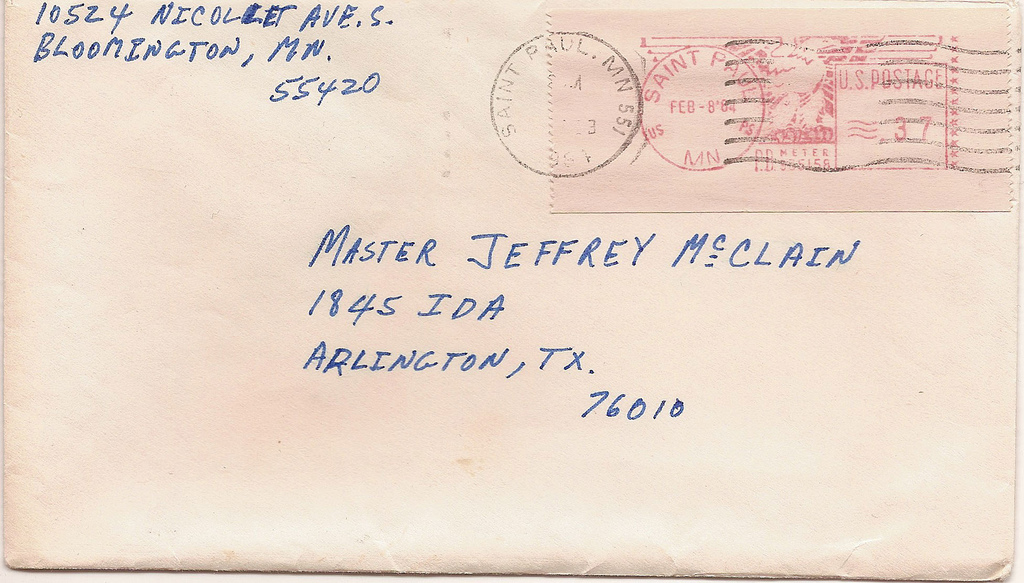 10524 NICOLLET AVE. S.
BLOOMINGTON, MN.
55420
SAINT PAUL, MN 551
SAINT PAUL
FEB - 8 '84
MN
U.S. POSTAGE
37
METER
MASTER JEFFREY McCLAIN
1845 IDA
ARLINGTON, TX.
76010